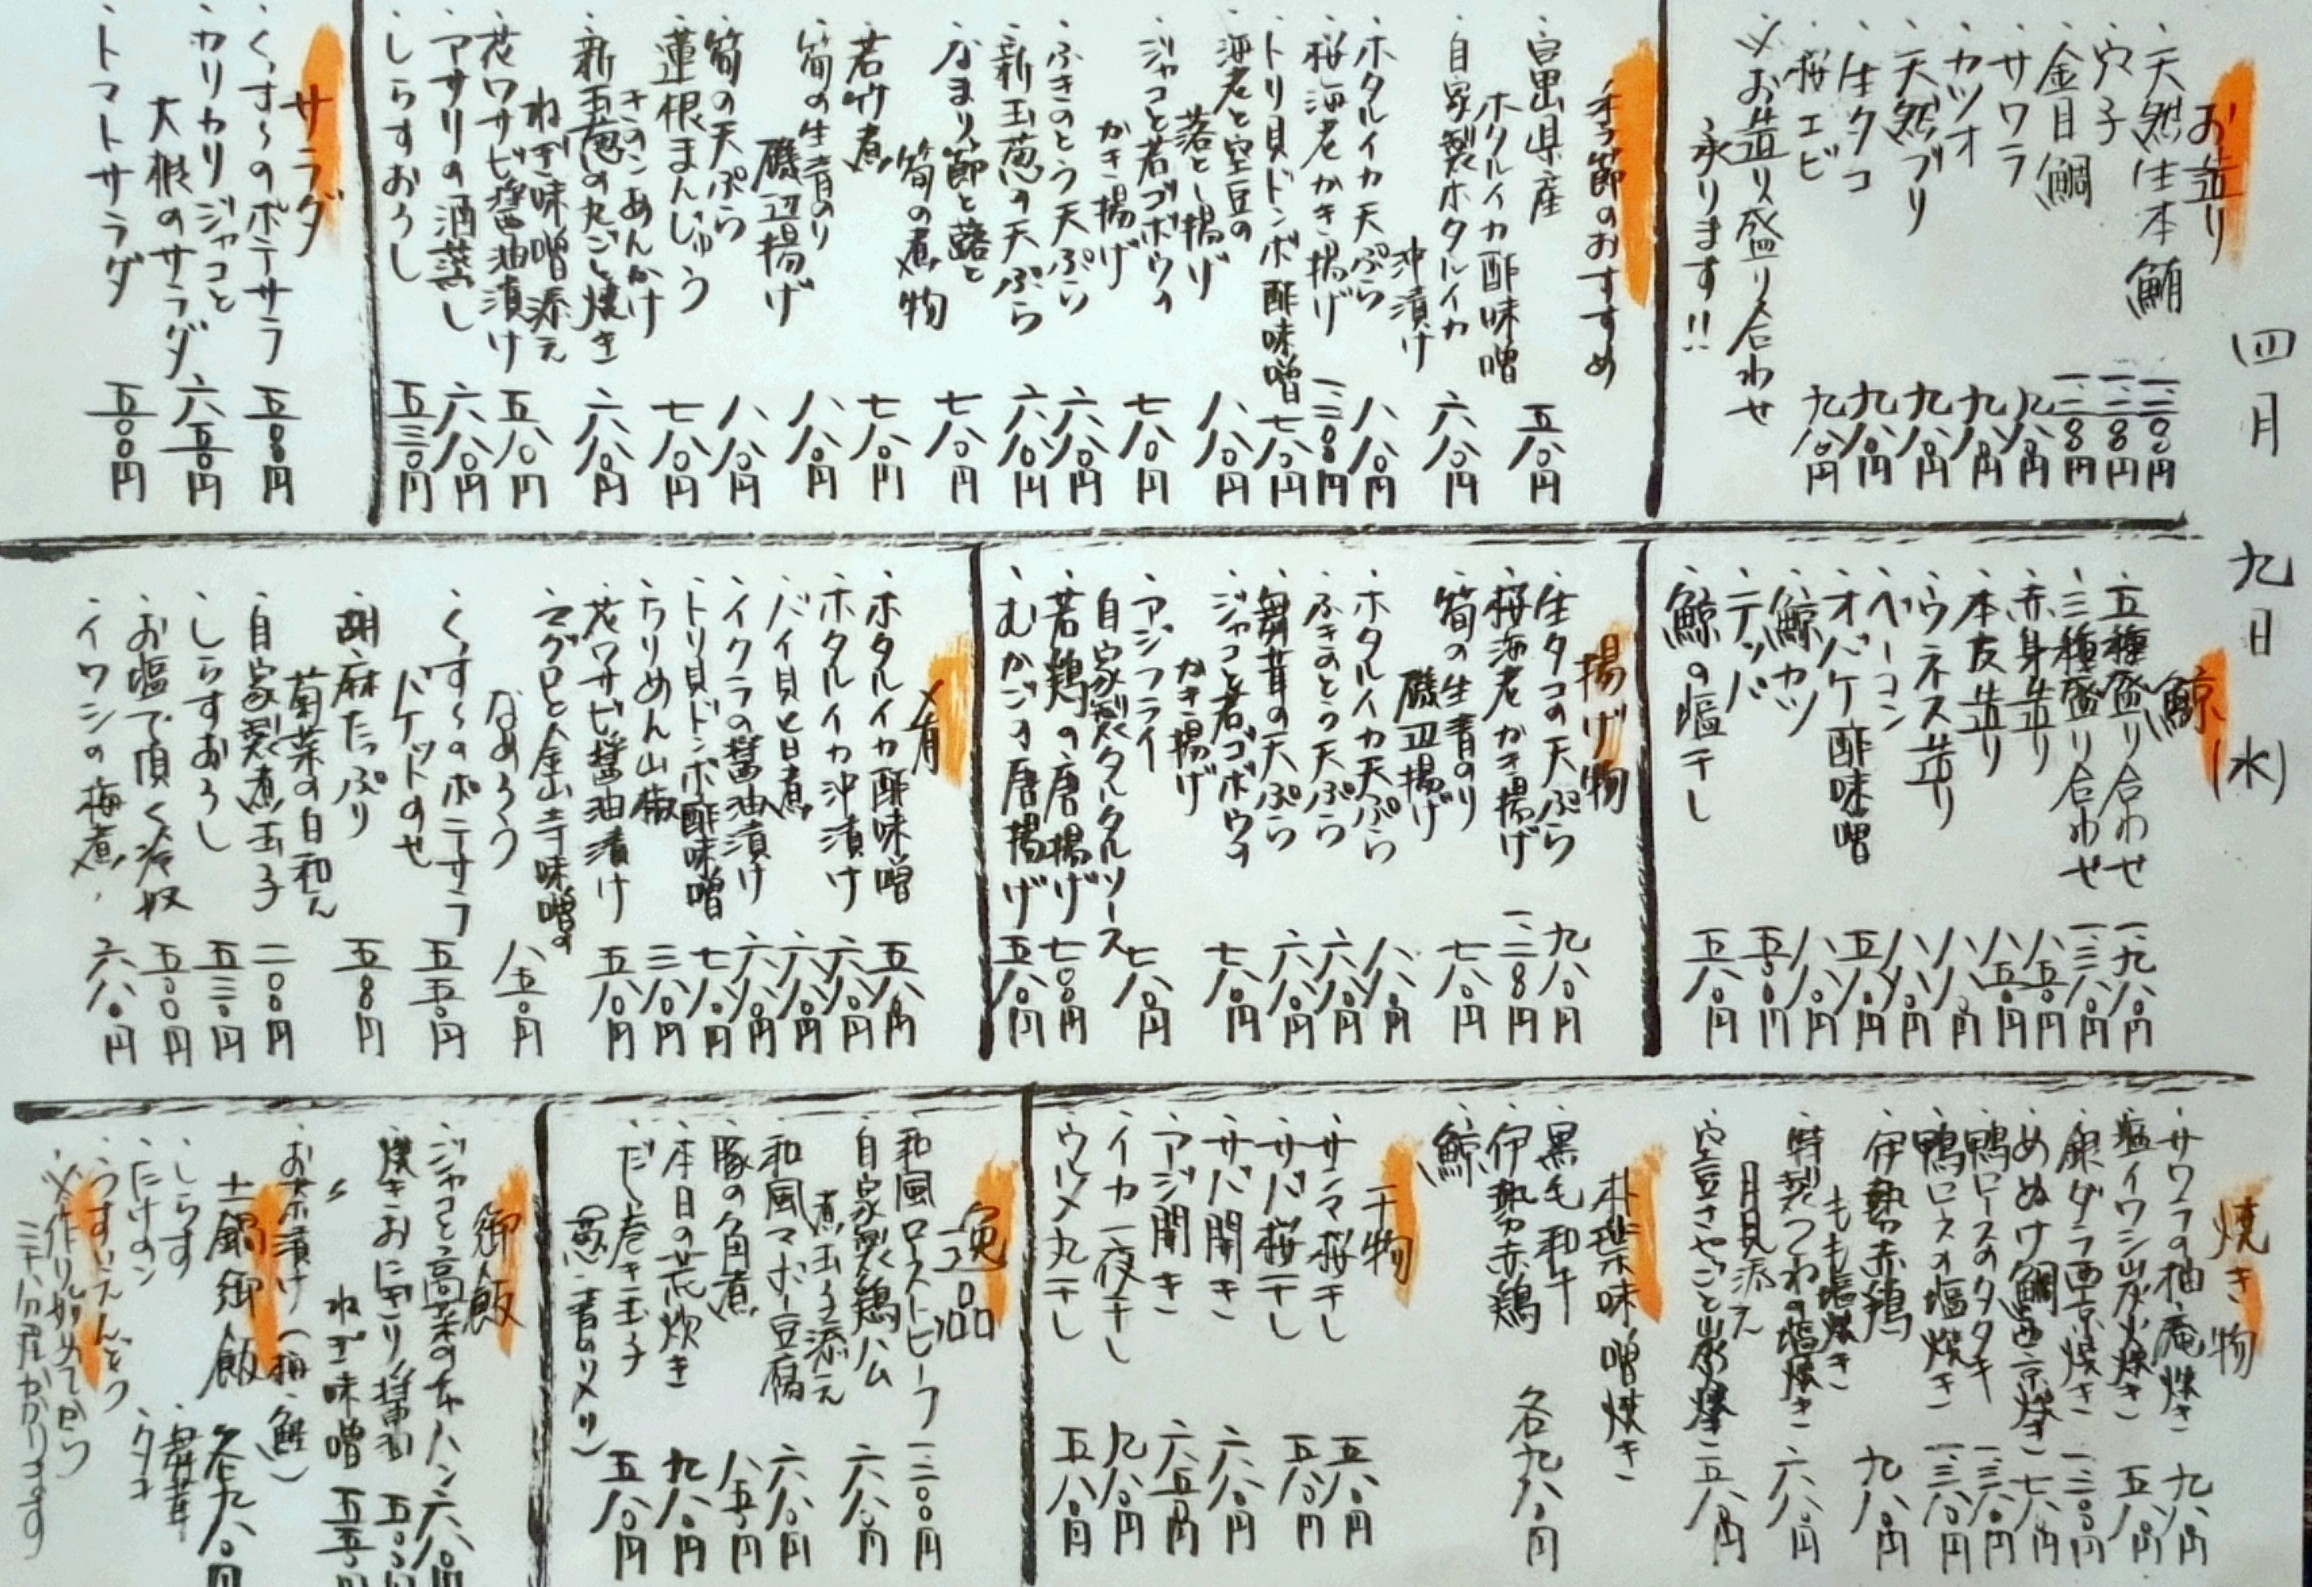 四月九日(水)
お造り
・天然生本鮪 一、二〇〇円
・穴子 一、二〇〇円
・金目鯛 一、二〇〇円
・サワラ 九八〇円
・カツオ 九八〇円
・天然ブリ 九八〇円
・生タコ 九八〇円
・桜エビ 九八〇円
※お造り盛り合わせ
承ります!!
季節のおすすめ
・富山県産
ホタルイカ酢味噌 五八〇円
・自家製ホタルイカ
沖漬け 六八〇円
・ホタルイカ天ぷら 八八〇円
・桜海老かき揚げ 一、二〇〇円
・トリ貝ドンボ酢味噌 七八〇円
・海老と空豆の
落とし揚げ 八八〇円
・ジャコと若ゴボウの
かき揚げ 七八〇円
・ふきのとう天ぷら 六八〇円
・新玉葱の天ぷら 六八〇円
・なまり節と蕗と
筍の煮物 七八〇円
・若竹煮 七八〇円
・筍の生青のり
磯辺揚げ 八八〇円
・筍の天ぷら 八八〇円
・蓮根まんじゅう
きのこあんかけ 七八〇円
・新玉葱の丸ごと焼き
ねぎ味噌添え 六八〇円
・花ワサビ醤油漬け 五八〇円
・アサリの酒蒸し 六八〇円
・しらすおろし 五三〇円
サラダ
・くっす〜のポテサラ 五〇〇円
・カリカリジャコと
大根のサラダ 六五〇円
・トマトサラダ 五〇〇円
鯨
・五種盛り合わせ 一、九八〇円
・三種盛り合わせ 一、三八〇円
・赤身造り 八五〇円
・本皮造り 八五〇円
・ウネス造り 八八〇円
・ベーコン 八八〇円
・オバケ酢味噌 五八〇円
・鯨カツ 八八〇円
・テッパ 五五〇円
・鯨の塩干し 五八〇円
揚げ物
・生タコの天ぷら 九八〇円
・桜海老かき揚げ 一、二〇〇円
・筍の生青のり
磯辺揚げ 七八〇円
・ホタルイカ天ぷら 八八〇円
・ふきのとう天ぷら 六八〇円
・舞茸の天ぷら 六八〇円
・ジャコと若ゴボウの
かき揚げ 七八〇円
・アジフライ
自家製タルタルソース 七八〇円
・若鶏の唐揚げ 七〇〇円
・むかごの唐揚げ 五八〇円
〆肴
・ホタルイカ酢味噌 五八〇円
・ホタルイカ沖漬け 六八〇円
・バイ貝旨煮 六八〇円
・イクラの醤油漬け 六八〇円
・トリ貝ドンボ酢味噌 七八〇円
・ちりめん山椒 三八〇円
・花ワサビ醤油漬け 五八〇円
・マグロと金山寺味噌の
なめろう 八五〇円
・くっす〜のポテサラ
バケットのせ 五五〇円
・胡麻たっぷり
菊菜の白和え 五〇〇円
・自家製煮玉子 二〇〇円
・しらすおろし 五三〇円
・お塩で頂く冷奴 五〇〇円
・イワシの梅煮 六八〇円
焼き物
・サワラの柚庵焼き 九八〇円
・塩イワシ炭火焼き 五八〇円
・銀ダラ西京焼き 一、二〇〇円
・めぬけ鯛西京焼き 七八〇円
・鴨ロースのタタキ 一、三八〇円
・鴨ロースの塩焼き 一、三八〇円
・伊勢赤鶏
もも塩焼き 九八〇円
・特製つくねの塩焼き
月見添え 六八〇円
・空豆さやごと炭焼き 五八〇円
朴葉味噌焼き
・黒毛和牛
・伊勢赤鶏 各九八〇円
・鯨
干物
・サンマ桜干し 五八〇円
・サバ桜干し 五八〇円
・サバ開き 六八〇円
・アジ開き 六五〇円
・イカ一夜干し 九八〇円
・ウルメ丸干し 五八〇円
逸品
・和風ローストビーフ 一、二〇〇円
・自家製鶏ハム
煮玉子添え 六八〇円
・和風マーボー豆腐 六八〇円
・豚の角煮 八五〇円
・本日の荒炊き 九八〇円
・だし巻き玉子
(葱・青のり入り) 五八〇円
御飯
・ジャコと高菜のチャーハン 六八〇円
・焼きおにぎり 醤油 五〇〇円
・〃 ねぎ味噌 五五〇円
・お茶漬け(梅・鮭)
土鍋御飯 各九八〇円
・しらす ・舞茸
・たけのこ ・タコ
・うすいえんどう
※作り始めてから
三十分程かかります